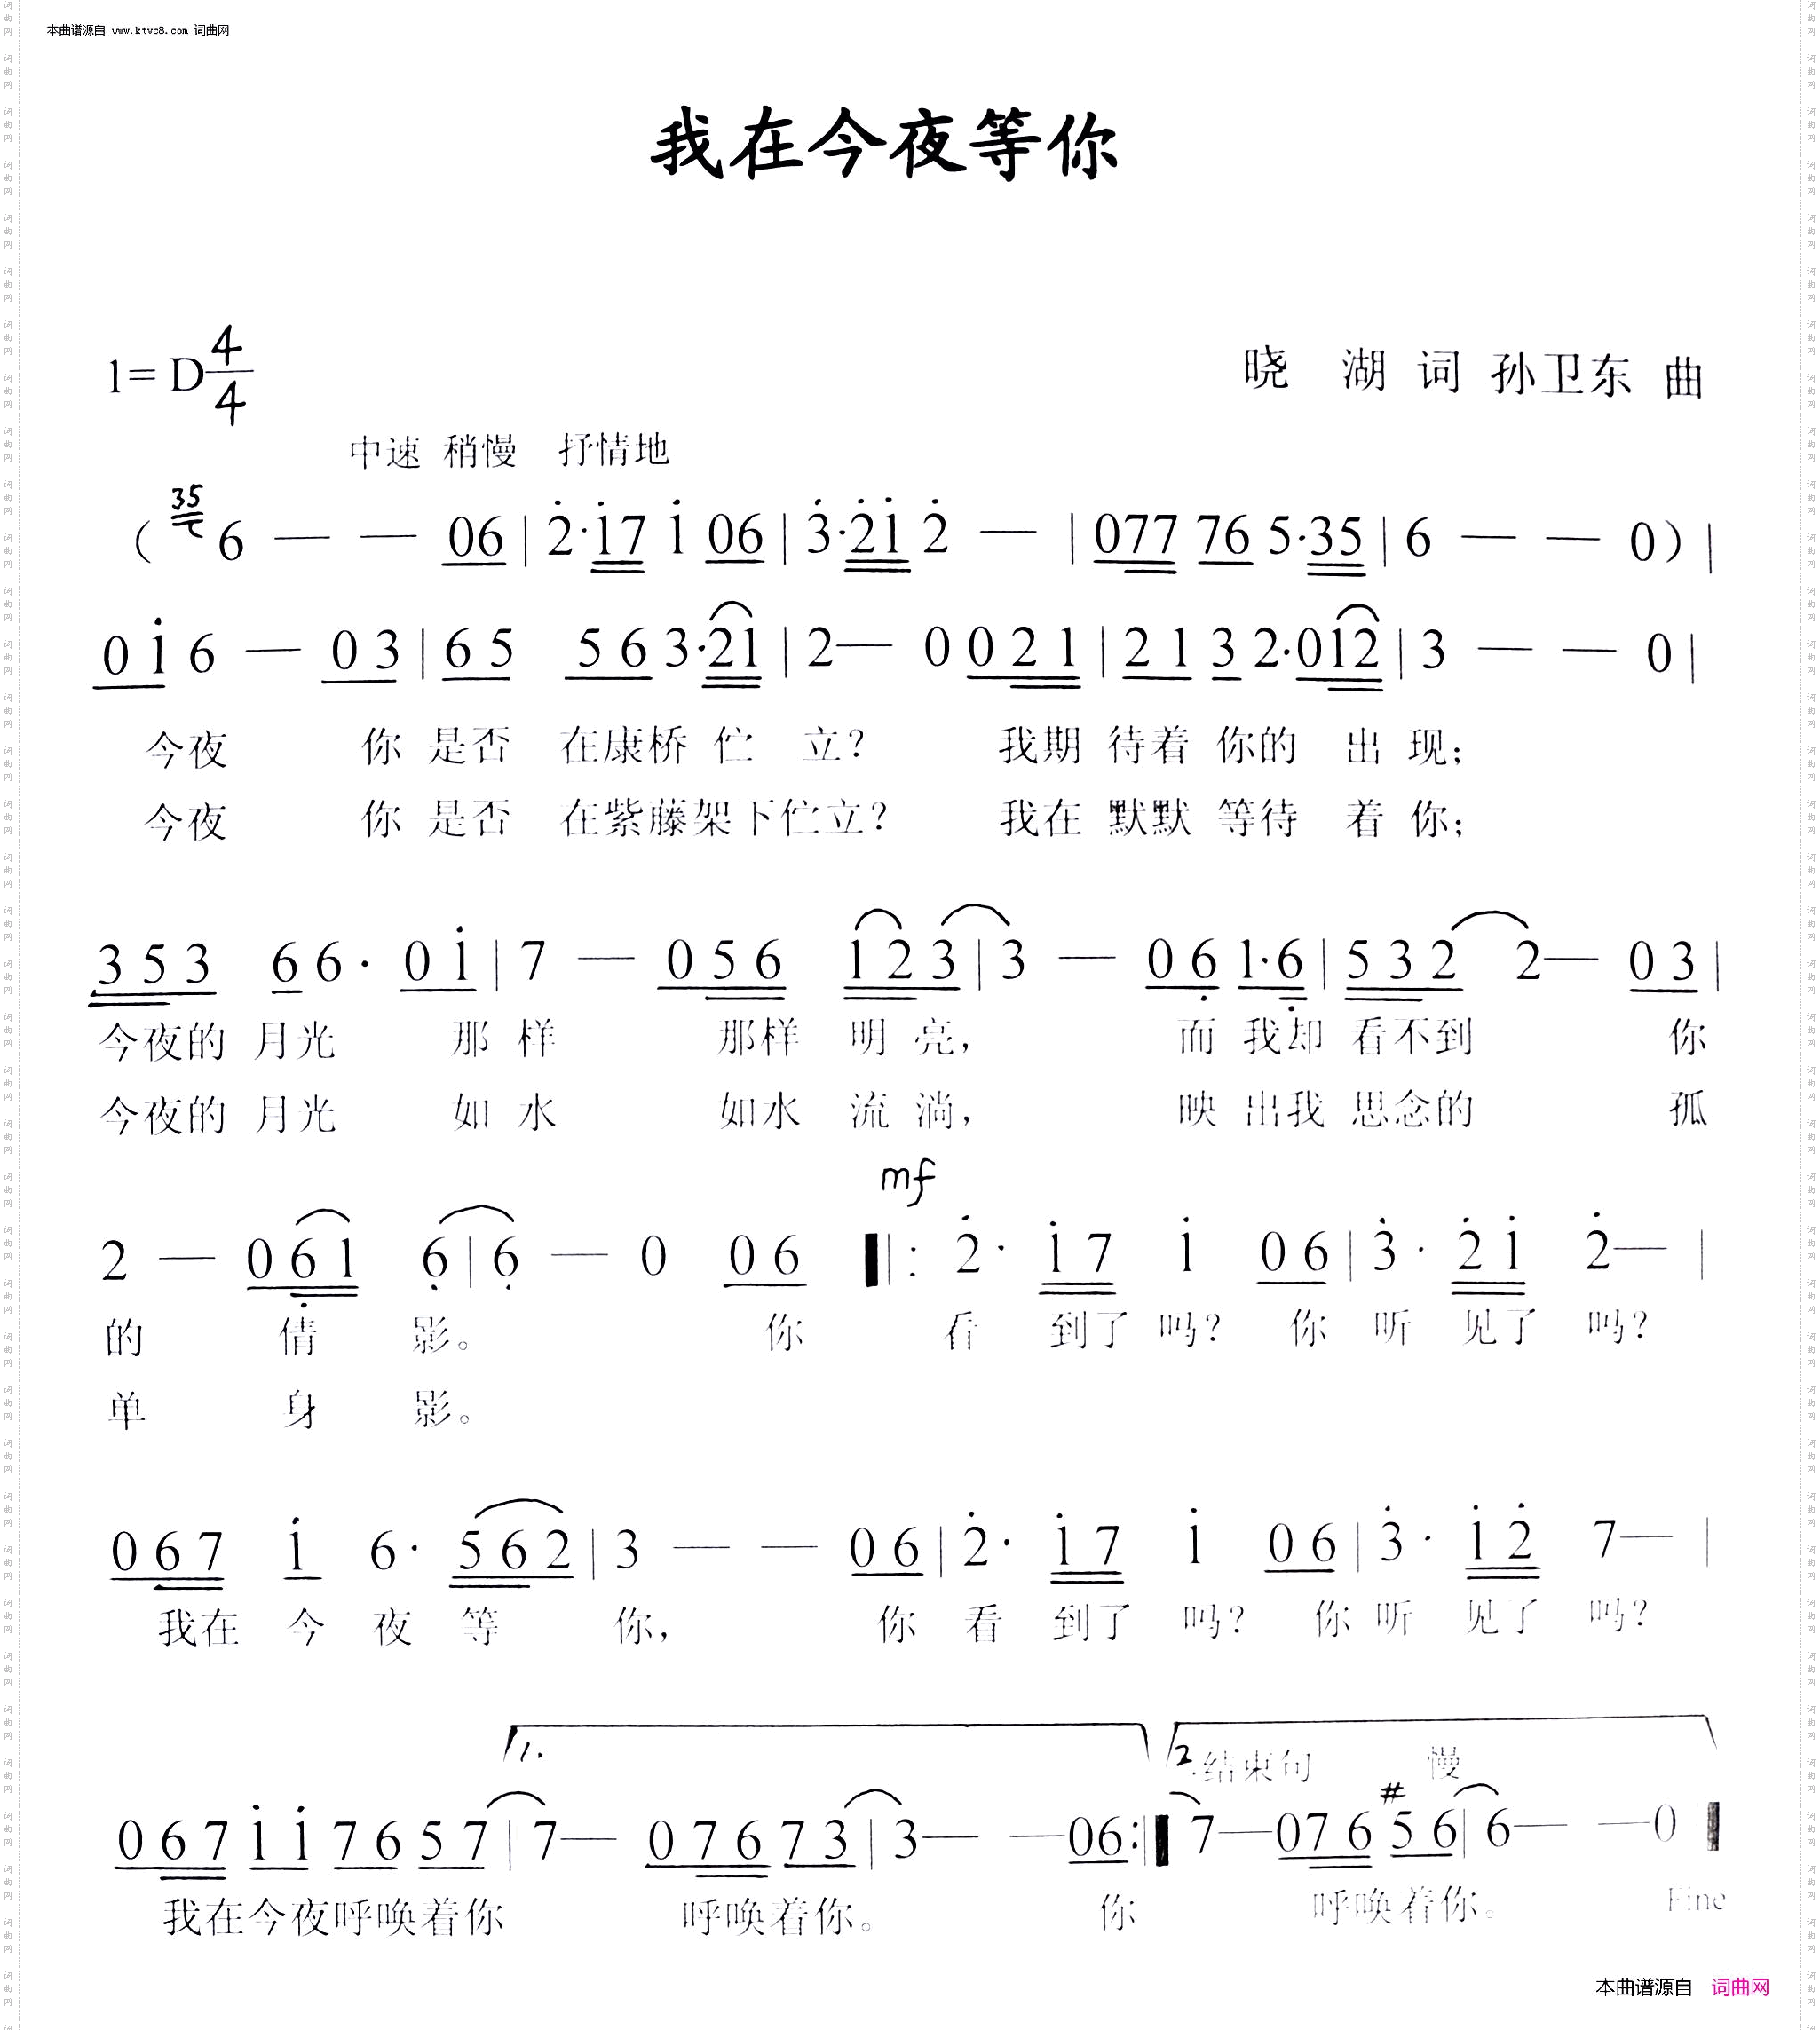 本曲谱源自 www.ktvc8.com 词曲网
我在今夜等你
1=D 4/4
晓 湖 词 孙卫东 曲
中速 稍慢 抒情地
35
( 6 — — 06 | 2·17 1 06 | 3·21 2 — | 077 76 5·35 | 6 — — 0) |
0 1 6 — 0 3 | 6 5 5 6 3·21 | 2— 0 0 2 1 | 2 1 3 2·012 | 3 — — 0 |
今夜 你 是否 在康桥 伫 立? 我期 待着 你的 出 现;
今夜 你 是否 在紫藤架下伫立? 我在 默默 等待 着 你;
3 5 3 6 6· 0 1 | 7 — 0 5 6 1 2 3 | 3 — 0 6 1·6 | 5 3 2 2— 0 3 |
今夜的 月光 那 样 那样 明 亮, 而 我却 看不到 你
今夜的 月光 如 水 如水 流 淌, 映 出我 思念的 孤
mf
2 — 0 6 1 6 | 6 — 0 0 6 ‖: 2· 1 7 1 0 6 | 3· 2 1 2— |
的 倩 影。 你 看 到了 吗? 你 听 见了 吗?
单 身 影。
0 6 7 1 6· 5 6 2 | 3 — — 0 6 | 2· 1 7 1 0 6 | 3· 1 2 7— |
我在 今 夜 等 你, 你 看 到了 吗? 你 听 见了 吗?
1. 2.结束句 慢
0 6 7 1 1 7 6 5 7 | 7— 0 7 6 7 3 | 3— —06:‖ 7—0 7 6 #5 6 | 6— —0 ‖
我在今夜呼唤着你 呼唤着你。 你 呼唤着你。 Fine
本曲谱源自 词曲网